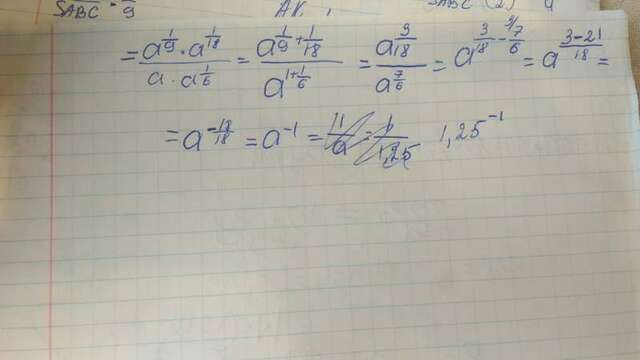 S_ABC = 9 AK, S_ABC (2) 4
= (a^(1/9) · a^(1/18))/(a · a^(1/6)) = (a^(1/9 + 1/18))/(a^(1 + 1/6)) = (a^(3/18))/(a^(7/6)) = a^(3/18 - 3/7/6) = a^((3-21)/18) =
= a^(-18/18) = a^(-1) = 1,25^(-1)